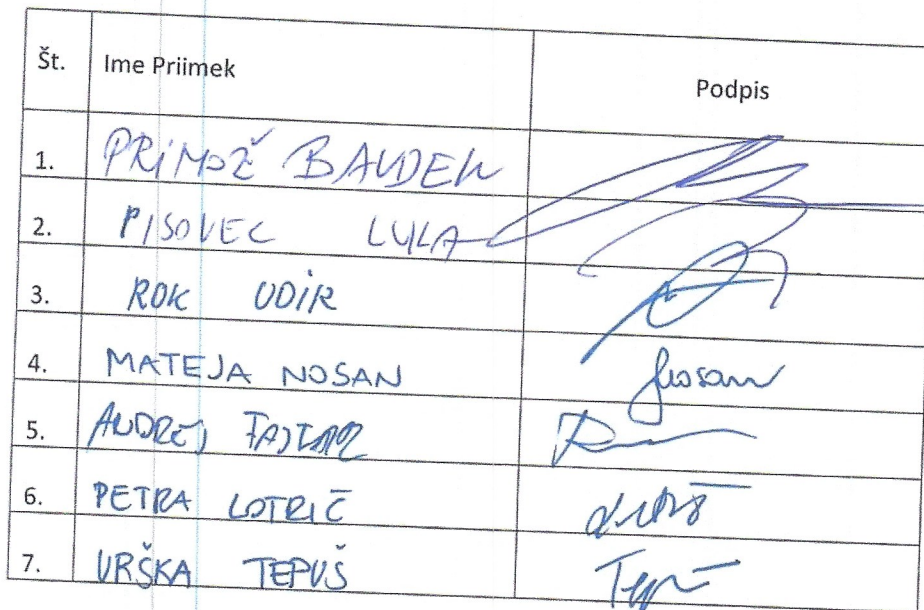 Št. Ime Priimek Podpis
1. PRIMOŽ
2. PISOVEC LUKA
3. ROK UDIR
4. MATEJA NOSAN Nosan
5. ANDREJ
6. PETRA LOTRIČ
7. URŠKA TEPUŠ